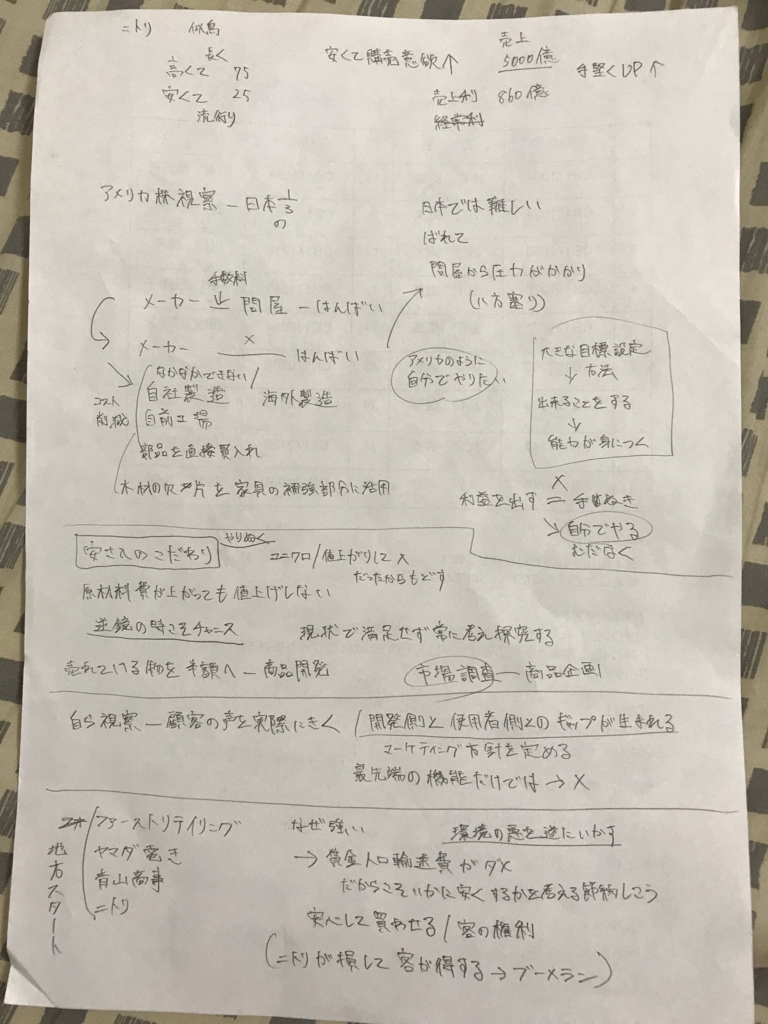 ニトリ 似鳥
長く
高くて 75
安くて 25
流行り
安くて購売意欲↑
売上
5000億
手堅くUP↑
売上利 860億
経常利
アメリカ 視察 — 日本の 1/3
日本では難しい
ばれて
問屋から圧力がかかり
(八方塞り)
手数料
メーカー 問屋 — はんばい
メーカー × はんばい
コスト削減
なかなかできない
自社製造 海外製造
自前工場
部品を直接買入れ
木材の欠片を家具の補強部分に活用
アメリカのように
自分でやりたい
大きな目標設定
↓ 方法
出来ることをする
↓
能力が身につく
利益を出す = 手ぬき
×
↘ 自分でやる
むだなく
安さへのこだわり やりぬく
ユニクロ/値上がりして×
だったからもどす
原材料費が上がっても値上げしない
逆境の時こそチャンス 現状で満足せず常に考え探究する
売れている物を半額へ — 商品開発 市場調査 — 商品企画
自ら視察 — 顧客の声を実際にきく / 開発側と使用者側とのギャップが生まれる
マーケティング方針を定める
最先端の機能だけでは → ×
地方スタート
ファーストリテイリング
ヤマダ電き
青山商事
ニトリ
なぜ強い 環境の悪を逆にいかす
→ 賃金人口輸送費がダメ
だからこそいかに安くするかを考える節約しこう
安心して買わせる / 客の権利
(ニトリが損して客が得する → ブーメラン)